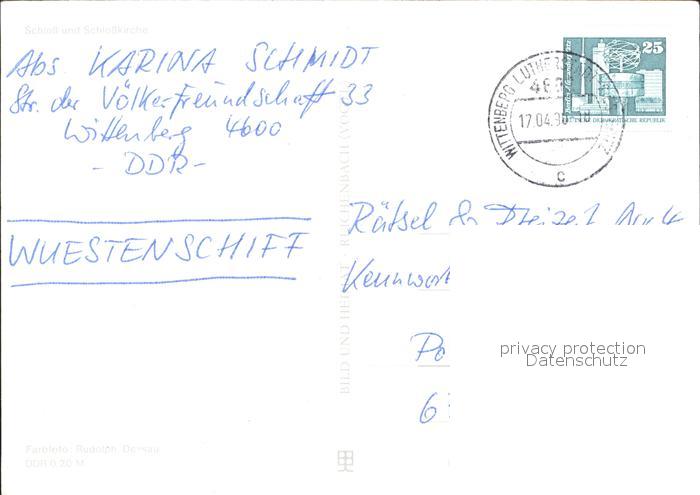 Schloß und Schloßkirche
Abs KARINA SCHMIDT
Str. der Völkerfreundschaft 33
Wittenberg 4600
- DDR -
WUESTENSCHIFF
Rätsel
Kennwort
Po
6
25
DEMOKRATISCHE REPUBLIK
WITTENBERG LUTHERSTADT
17.04.90
c
BILD UND HEIMAT · REICHENBACH (VOGTL)
privacy protection
Datenschutz
Farbfoto: Rudolph, Dessau
DDR 0,20 M